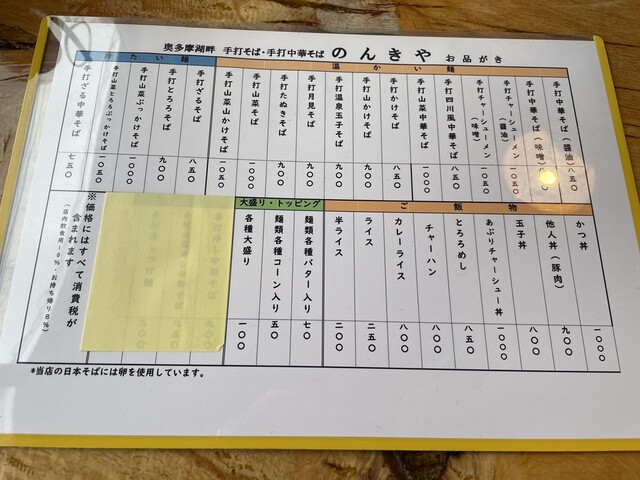 奥多摩湖畔 手打そば・手打中華そば のんきや お品がき
温かい麺
手打中華そば(醤油) 八五〇
手打中華そば(味噌)
手打チャーシューメン(醤油) 一〇五〇
手打チャーシューメン(味噌) 一〇五〇
手打四川風中華そば 八五〇
手打山菜中華そば 一〇〇〇
手打かけそば 八五〇
手打山かけそば 九〇〇
手打温泉玉子そば 九〇〇
手打月見そば 九〇〇
手打たぬきそば 九〇〇
手打山菜そば 一〇〇〇
手打山菜山かけそば 一〇五〇
たい麺
手打ざるそば 八五〇
手打とろろそば 九〇〇
手打山菜ぶっかけそば 一〇〇〇
手打山菜とろろぶっかけそば 一〇五〇
手打ざる中華そば 七五〇
ご飯物
かつ丼 一〇〇〇
他人丼(豚肉) 九〇〇
玉子丼 八〇〇
あぶりチャーシュー丼 一〇〇〇
とろろめし 八五〇
チャーハン 八〇〇
カレーライス 八〇〇
ライス 二五〇
半ライス 二〇〇
大盛り・トッピング
麺類各種バター入り 七〇
麺類各種コーン入り 五〇
各種大盛り 一〇〇
※価格にはすべて消費税が
含まれます
(店内飲食用10%、お持ち帰り8%)
*当店の日本そばには卵を使用しています。